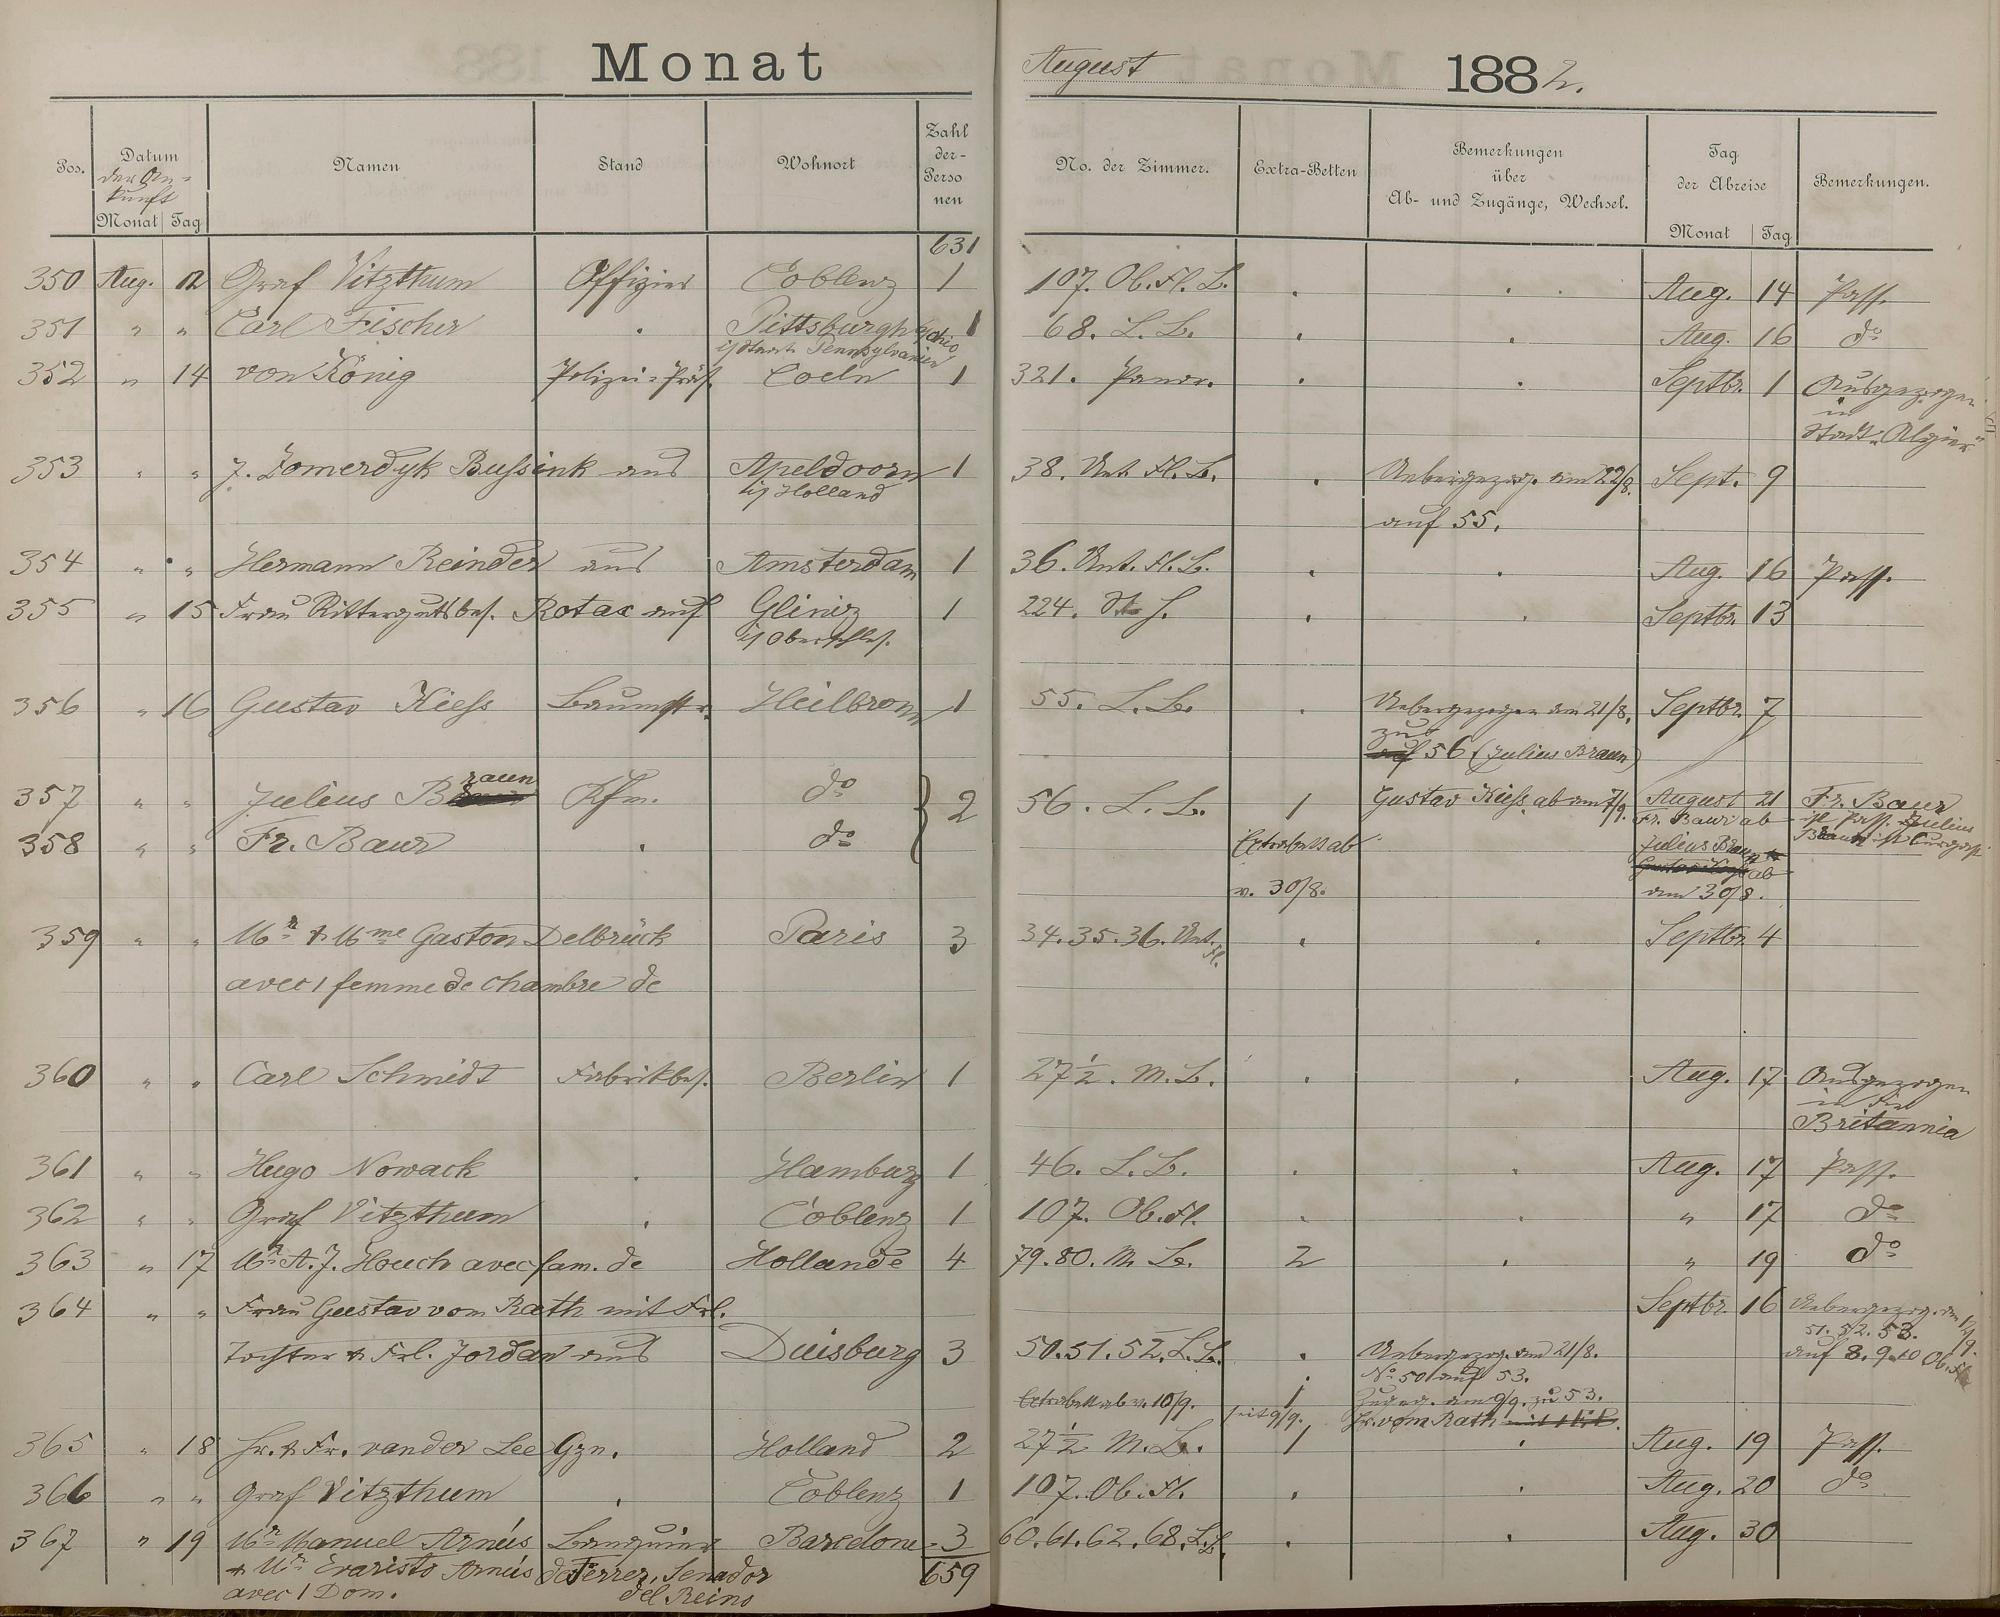 Monat August 1882.
Pos. Datum der Ankunft Monat Tag Namen Stand Wohnort Zahl der Personen No. der Zimmer. Extra-Betten Bemerkungen über Ab- und Zugänge, Wechsel. Tag der Abreise Monat Tag Bemerkungen.
631
350 Aug. 12 Graf Vitzthum Offizier Coblenz 1 107. Ob. Fl. L. . . . Aug. 14 Pass.
351 " " Carl Fischer . Pittsburgh Ohio 1 68. L. L. . . Aug. 16 do
i/ Staate Pennsylvanien
352 " 14 von König Polizei-Präs. Coeln 1 321. Panor. . . Septbr. 1 Ausgezogen
in
Stadt "Algier"
353 " " J. Zomerdyk Bussink aus Apeldoorn 1 38. Unt. Fl. L. . Uebergezog. am 22/8. Sept. 9
i/ Holland
auf 55.
354 " " Hermann Reinder aus Amsterdam 1 36. Unt. Fl. L. . . Aug. 16 Pass.
355 " 15 Frau Rittergutsbes. Rotax auf Gliniz 1 224. . . Septbr. 13
i/ Oberschles.
356 " 16 Gustav Kiess Baumstr. Heilbronn 1 55. L. L. . Uebergezogen am 21/8. Septbr. 7
zu
auf 56 (Julius Braun)
357 " " Julius Braun Kfm. do 2 56. L. L. 1 Gustav Kiess ab am 7/9. August 21 Fr. Baur
Fr. Baur ab ist Pass. Julius
358 " " Fr. Baur . do Extrabett ab Julius Braun Braun ist Curgast
ab
v. 30/8. am 30/8.
359 " " Mr & Mme Gaston Delbrück Paris 3 34. 35. 36. Unt. Fl. . . Septbr. 4
avec 1 femme de chambre de
360 " " Carl Schmidt Fabrikbes. Berlin 1 27 1/2. M. L. . . Aug. 17 Ausgezogen
in die
Britannia
361 " " Hugo Nowack . Hamburg 1 46. L. L. . . Aug. 17 Pass.
362 " " Graf Vitzthum . Coblenz 1 107. Ob. Fl. . . " 17 do
363 " 17 Mr A. J. Houch avec fam. de Hollande 4 79. 80. M. L. 2 . " 19 do
364 " " Frau Gustav vom Rath mit Frl. Septbr. 16 Uebergezog. am 12/9.
51. 52. 53.
Tochter & Frl. Jordan aus Duisburg 3 50. 51. 52. L. L. . Uebergezog. am 21/8. auf 8. 9. 10 Ob. Fl.
No 50 auf 53.
Extrabett ab v. 10/9. seit 9/9. 1 Zugeg. am 9/9. zu 53.
Hr. vom Rath
365 " 18 Hr. & Fr. van der Lee Gzn. Holland 2 27 1/2 M. L. 1 . Aug. 19 Pass.
366 " " Graf Vitzthum . Coblenz 1 107. Ob. Fl. . . Aug. 20 do
367 " 19 Mr Manuel Arnús Banquier Barcelone 3 60. 61. 62. 68. L. L. . . Aug. 30
& Mr Evaristo Arnús de Ferrer, Senador 659
avec 1 Dom. del Reino